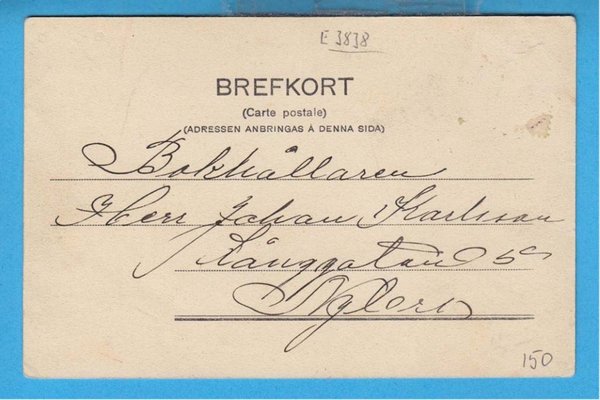 E 3838
BREFKORT
(Carte postale)
(ADRESSEN ANBRINGAS Å DENNA SIDA)
Bokhållaren
Herr Johan Karlsson
5
150